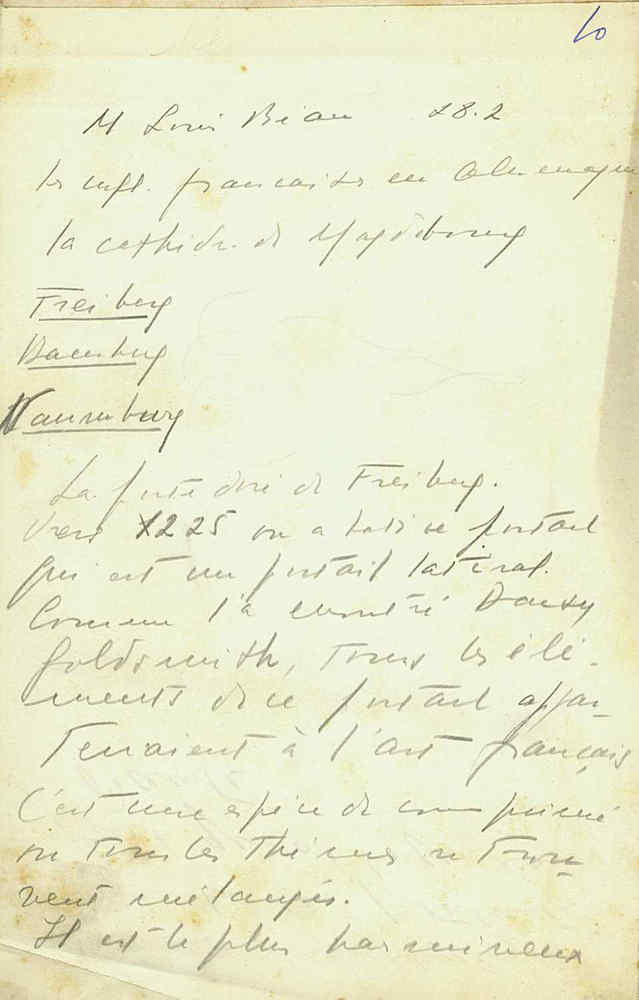 10
M Louis Réau 28.2
les infl. françaises en Allemagne
la cathédr. de Magdebourg
Freiberg
Bamberg
Naumburg
La porte doré de Freiberg.
Vers 1225 on a bati ce portail
qui est un portail latéral.
Comme l'a montré
Goldsmith, tous les élé-
ments de ce portail appar
tenaient à l'art français
C'est une espèce de comprimé
ou tous les thèmes se trou
vent mélangés.
Il est le plus harmonieux